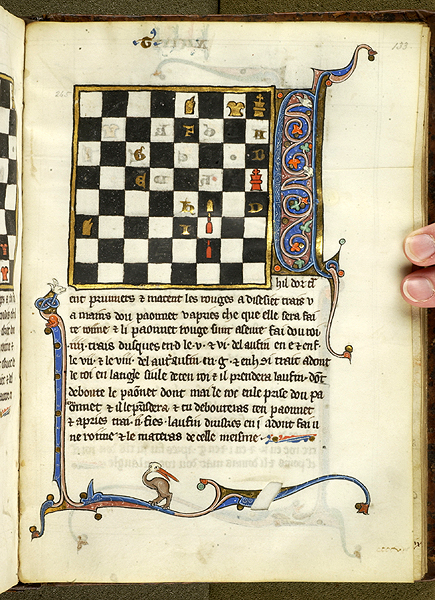 133
hil dor et
ent primiers & matent les rouges a disesiet trais v
a mains dou paonnet vapries che que elle sera fai
te roine & li paonnet rouge sunt aseure fai dou roi
iiij. trais dusques en d le .v. & vi. del aufin en e & en f.
le vii. & le viii. del aufin en .g. & en h. trait adont
le roi en langle siule de ten roi & il prendera laufin. dõt
deboute le paõnet dont mai le roi en le prise dou pa
õnnet & il le p̃dera. & tu debouteras ten paonnet
& apries trai .ii. fies. laufin en i adont fai
ne roine & le materas de celle meisme